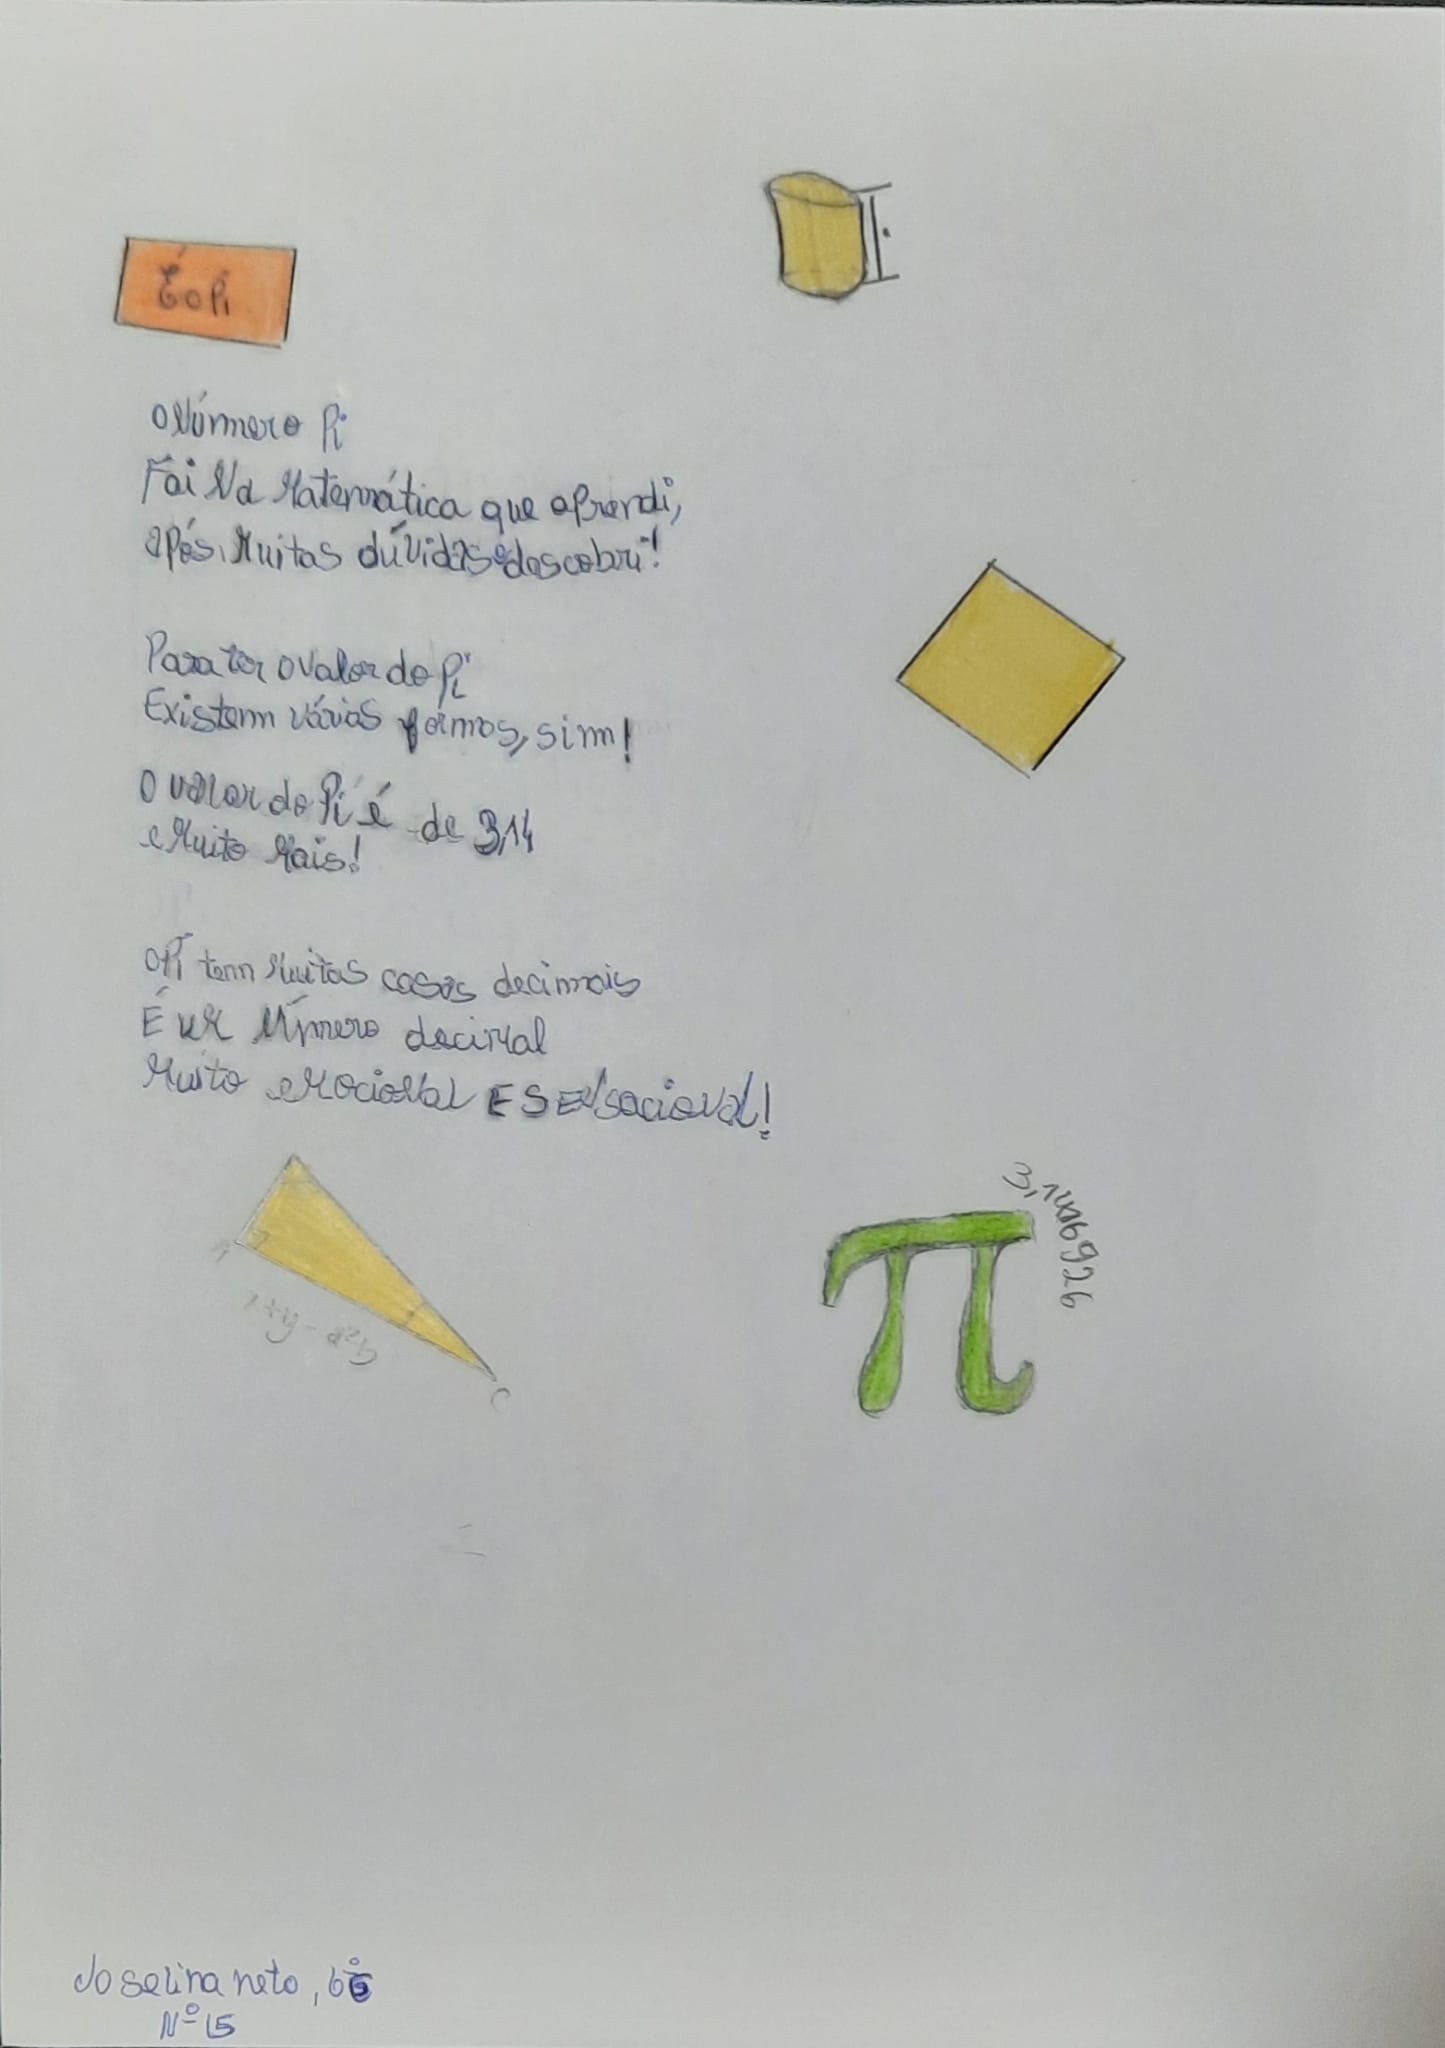 É o Pi
O Número Pi
Foi Na Matemática que aprendi,
após, Muitas dúvidas e descobri!
Para ter o valor do Pi
Existem várias formas, sim!
O valor do Pi é de 3,14
e Muito Mais!
O Pi tem Muitas casas decimais
É uM Número deciMal
Muito eMocioNal E SENsacioNal!
3,1416926
A
C
Joselina neto, 6º
Nº 15